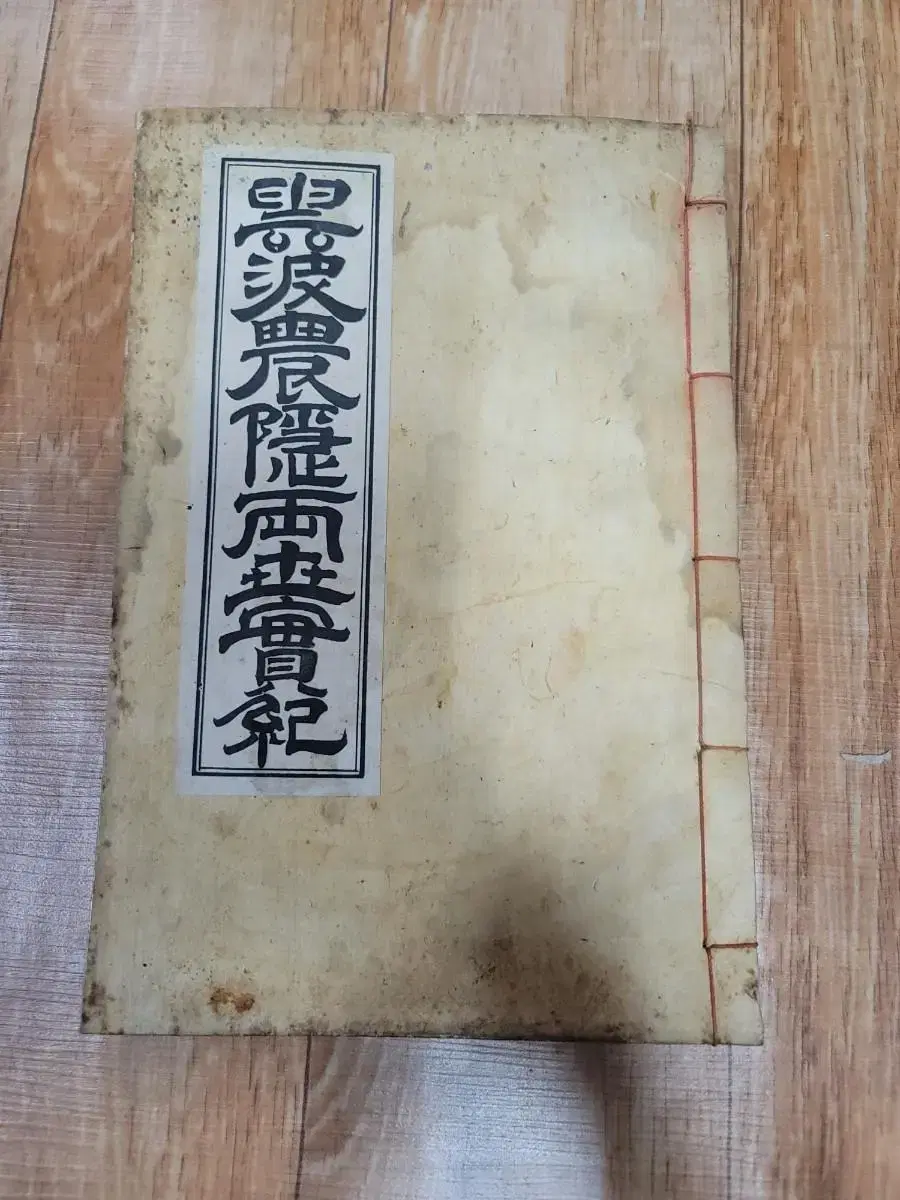 興波農隱兩世實紀